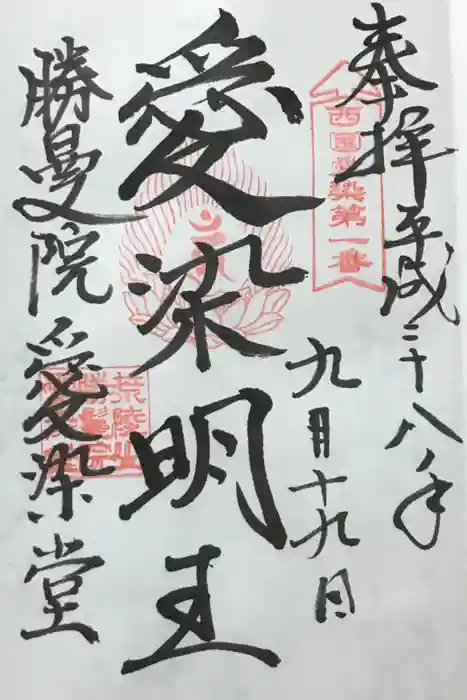 奉拝
平成二十八年
九月十九日
西国愛染第一番
愛染明王
勝鬘院
愛染堂